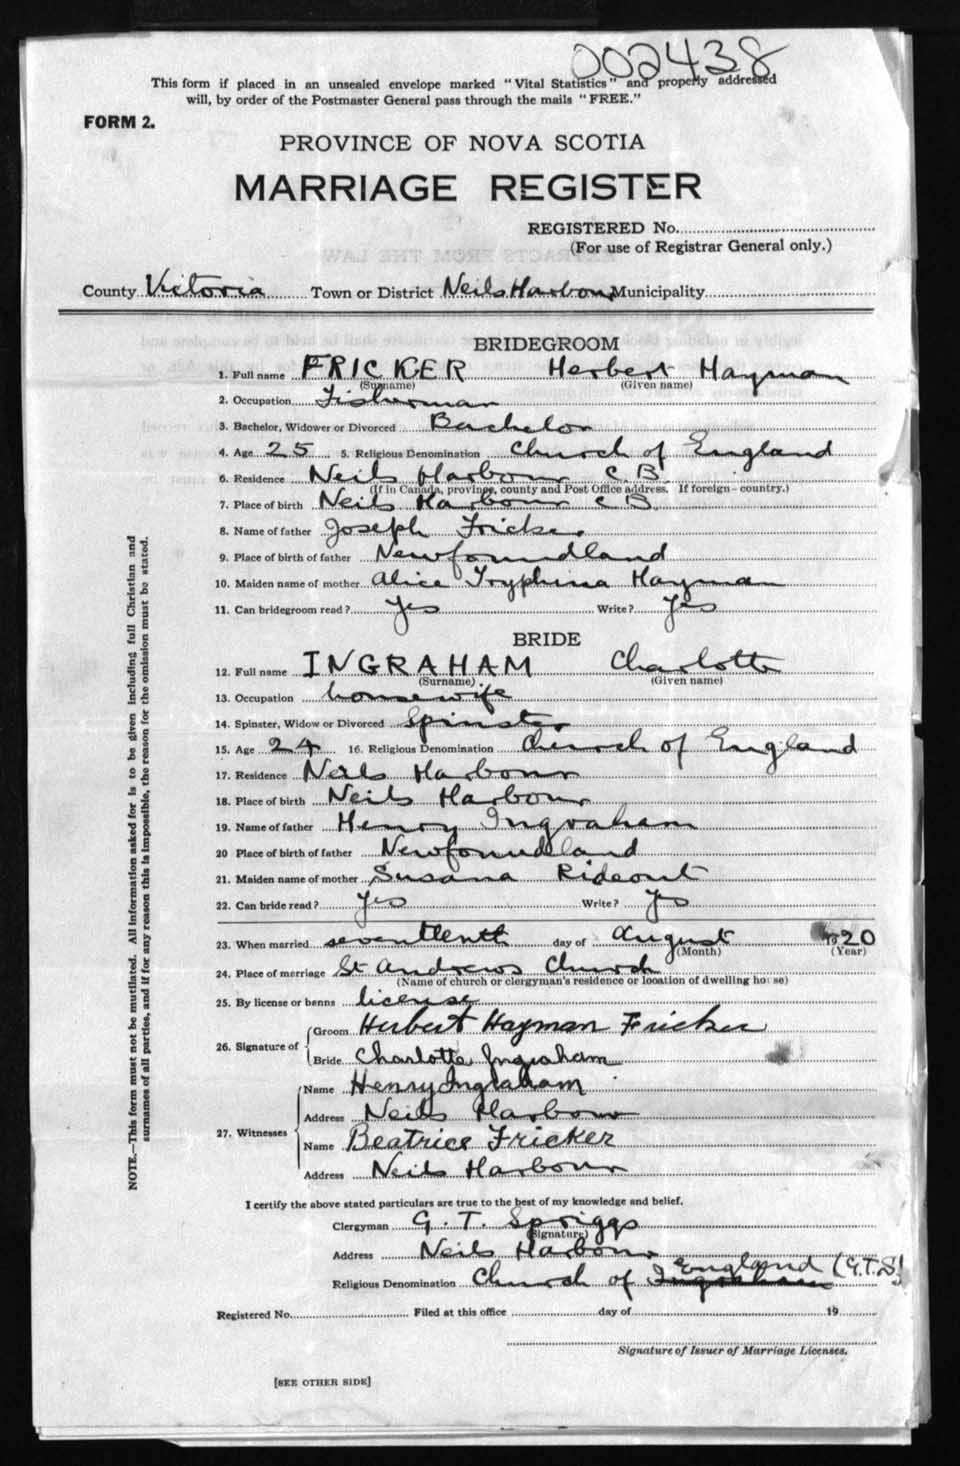 002438
This form if placed in an unsealed envelope marked "Vital Statistics" and properly addressed
will, by order of the Postmaster General pass through the mails "FREE."
FORM 2.
PROVINCE OF NOVA SCOTIA
MARRIAGE REGISTER
REGISTERED No.
(For use of Registrar General only.)
County Victoria Town or District Neils Harbour Municipality
BRIDEGROOM
1. Full name FRICKER Herbert Hayman
(Surname) (Given name)
2. Occupation Fisherman
3. Bachelor, Widower or Divorced Bachelor
4. Age 25 5. Religious Denomination Church of England
6. Residence Neils Harbour C.B.
(If in Canada, province, county and Post Office address. If foreign-country.)
7. Place of birth Neils Harbour C B.
8. Name of father Joseph Fricker
9. Place of birth of father Newfoundland
10. Maiden name of mother Alice Tryphina Hayman
11. Can bridegroom read? Yes Write? Yes
BRIDE
12. Full name INGRAHAM Charlotte
(Surname) (Given name)
13. Occupation housewife
14. Spinster, Widow or Divorced Spinster
15. Age 24 16. Religious Denomination Church of England
17. Residence Neils Harbour
18. Place of birth Neils Harbour
19. Name of father Henry Ingraham
20 Place of birth of father Newfoundland
21. Maiden name of mother Susana Rideout
22. Can bride read? Yes Write? Yes
23. When married seventeenth day of August 1920
(Month) (Year)
24. Place of marriage St Andrews Church
(Name of church or clergyman's residence or location of dwelling house)
25. By license or banns license
26. Signature of
Groom Herbert Hayman Fricker
Bride Charlotte Ingraham
27. Witnesses
Name Henry Ingraham
Address Neils Harbour
Name Beatrice Fricker
Address Neils Harbour
I certify the above stated particulars are true to the best of my knowledge and belief.
Clergyman G. T. Spriggs
(Signature)
Address Neils Harbour
Religious Denomination Church of Ingraham England (G.T.S)
Registered No. Filed at this office day of 19
Signature of Issuer of Marriage Licenses.
[SEE OTHER SIDE]
NOTE.—This form must not be mutilated. All information asked for is to be given including full Christian and
surnames of all parties, and if for any reason this is impossible, the reason for the omission must be stated.